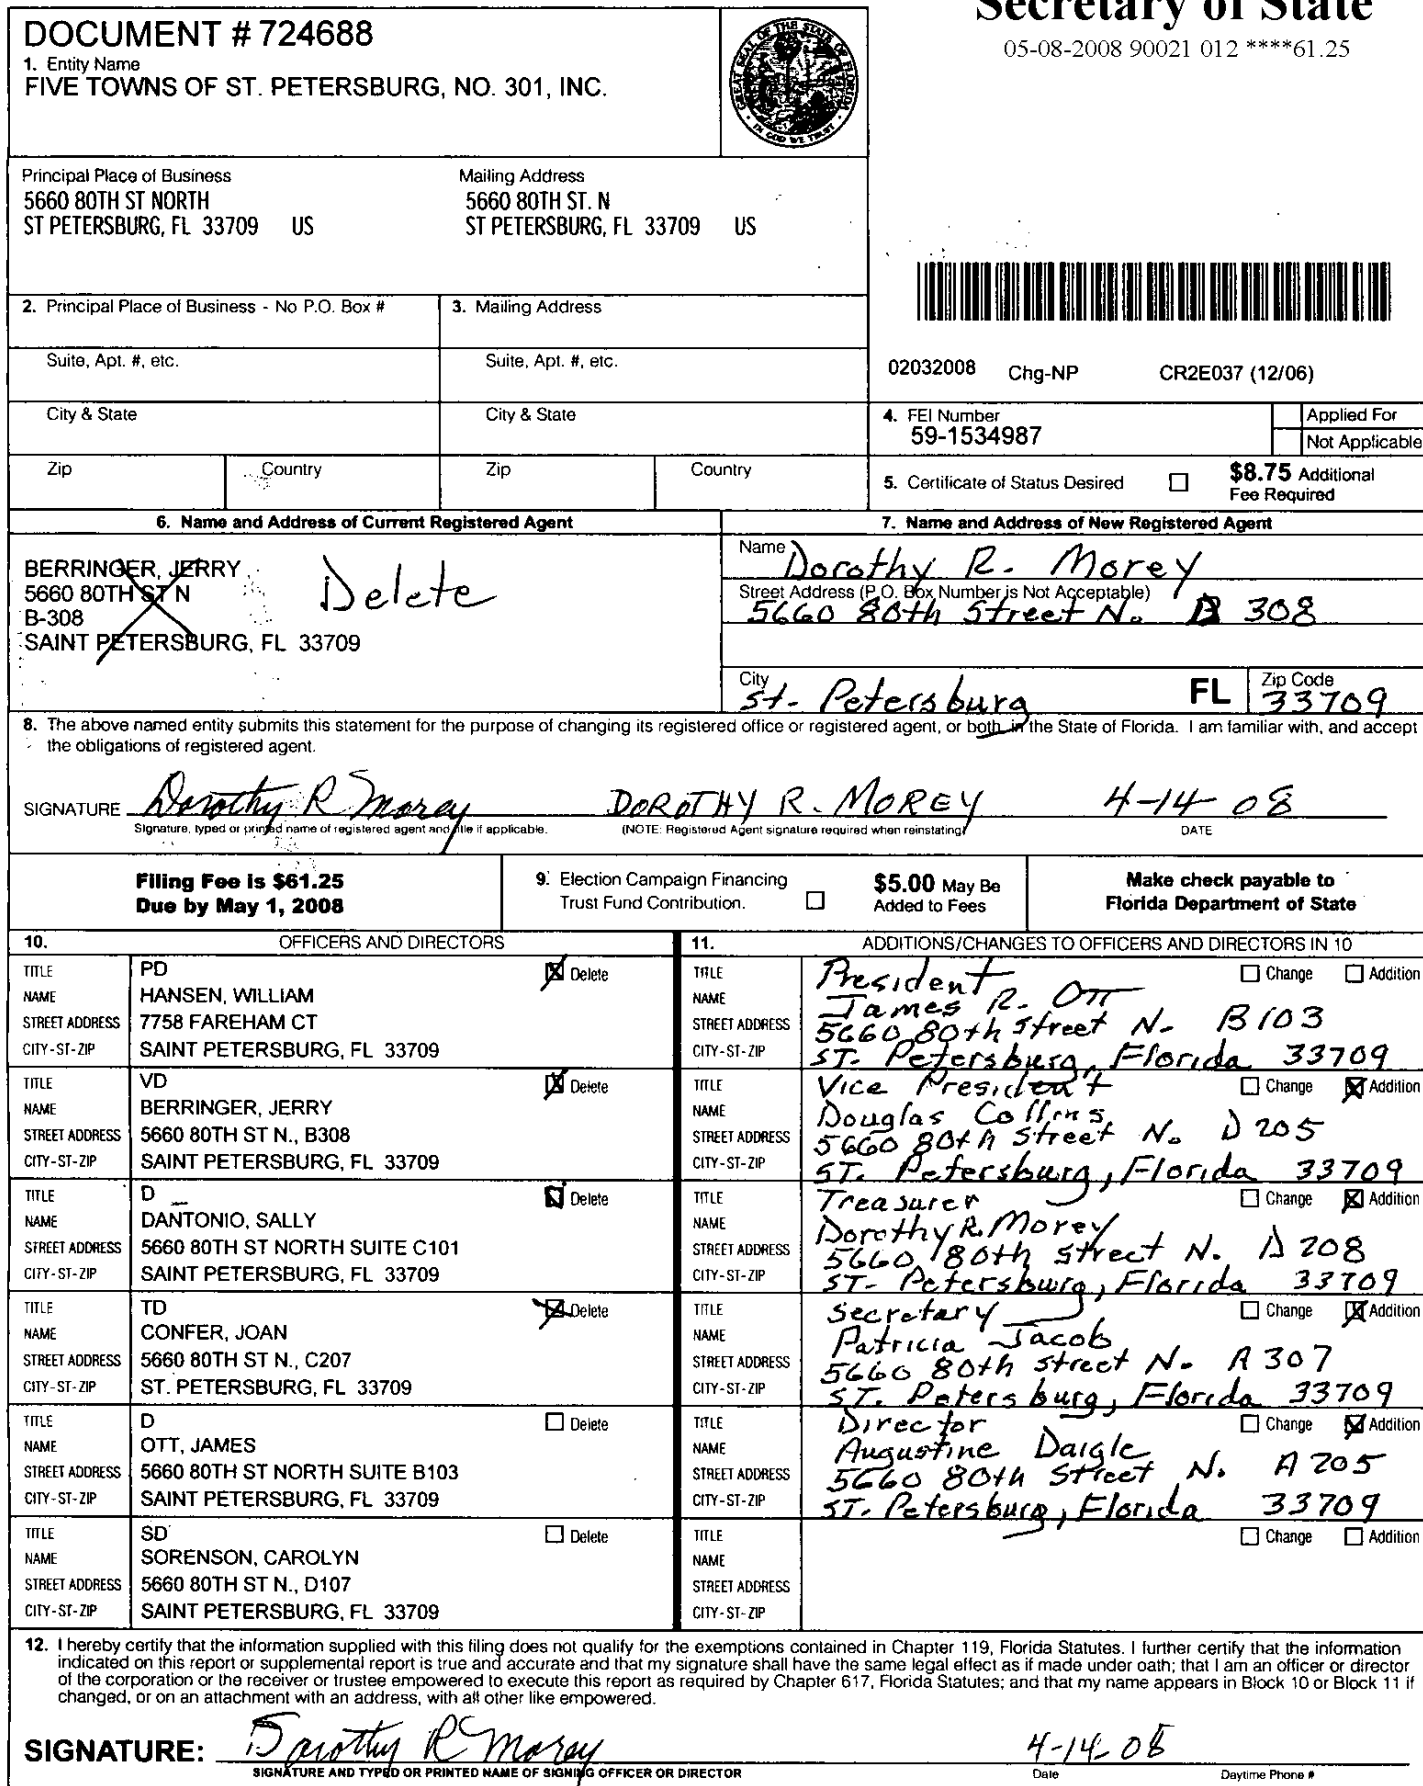 Secretary of State
05-08-2008 90021 012 ****61.25
DOCUMENT # 724688
1. Entity Name
FIVE TOWNS OF ST. PETERSBURG, NO. 301, INC.
GREAT SEAL OF THE STATE OF FLORIDA
IN GOD WE TRUST
Principal Place of Business
5660 80TH ST NORTH
ST PETERSBURG, FL 33709 US
Mailing Address
5660 80TH ST. N
ST PETERSBURG, FL 33709 US
2. Principal Place of Business - No P.O. Box #
3. Mailing Address
Suite, Apt. #, etc.
Suite, Apt. #, etc.
City & State
City & State
Zip
Country
Zip
Country
02032008 Chg-NP CR2E037 (12/06)
4. FEI Number
59-1534987
Applied For
Not Applicable
5. Certificate of Status Desired
$8.75 Additional
Fee Required
6. Name and Address of Current Registered Agent
BERRINGER, JERRY
5660 80TH ST N
B-308
SAINT PETERSBURG, FL 33709
Delete
7. Name and Address of New Registered Agent
Name Dorothy R. Morey
Street Address (P.O. Box Number is Not Acceptable)
5660 80th Street N. 308
City
St. Petersburg FL
Zip Code
33709
8. The above named entity submits this statement for the purpose of changing its registered office or registered agent, or both, in the State of Florida. I am familiar with, and accept
the obligations of registered agent.
SIGNATURE Dorothy R Morey DOROTHY R. MOREY 4-14-08
Signature, typed or printed name of registered agent and title if applicable. (NOTE: Registered Agent signature required when reinstating) DATE
Filing Fee is $61.25
Due by May 1, 2008
9. Election Campaign Financing
Trust Fund Contribution.
$5.00 May Be
Added to Fees
Make check payable to
Florida Department of State
10. OFFICERS AND DIRECTORS
TITLE PD Delete
NAME HANSEN, WILLIAM
STREET ADDRESS 7758 FAREHAM CT
CITY-ST-ZIP SAINT PETERSBURG, FL 33709
TITLE VD Delete
NAME BERRINGER, JERRY
STREET ADDRESS 5660 80TH ST N., B308
CITY-ST-ZIP SAINT PETERSBURG, FL 33709
TITLE D Delete
NAME DANTONIO, SALLY
STREET ADDRESS 5660 80TH ST NORTH SUITE C101
CITY-ST-ZIP SAINT PETERSBURG, FL 33709
TITLE TD Delete
NAME CONFER, JOAN
STREET ADDRESS 5660 80TH ST N., C207
CITY-ST-ZIP ST. PETERSBURG, FL 33709
TITLE D Delete
NAME OTT, JAMES
STREET ADDRESS 5660 80TH ST NORTH SUITE B103
CITY-ST-ZIP SAINT PETERSBURG, FL 33709
TITLE SD Delete
NAME SORENSON, CAROLYN
STREET ADDRESS 5660 80TH ST N., D107
CITY-ST-ZIP SAINT PETERSBURG, FL 33709
11. ADDITIONS/CHANGES TO OFFICERS AND DIRECTORS IN 10
TITLE President Change Addition
NAME James R. Ott
STREET ADDRESS 5660 80th Street N. B103
CITY-ST-ZIP ST. Petersburg, Florida 33709
TITLE Vice President Change Addition
NAME Douglas Collins
STREET ADDRESS 5660 80th Street N. D205
CITY-ST-ZIP ST. Petersburg, Florida 33709
TITLE Treasurer Change Addition
NAME Dorothy R. Morey
STREET ADDRESS 5660 80th Street N. D 208
CITY-ST-ZIP ST. Petersburg, Florida 33709
TITLE Secretary Change Addition
NAME Patricia Jacob
STREET ADDRESS 5660 80th Street N. A307
CITY-ST-ZIP ST. Petersburg, Florida 33709
TITLE Director Change Addition
NAME Augustine Daigle
STREET ADDRESS 5660 80th Street N. A205
CITY-ST-ZIP ST. Petersburg, Florida 33709
TITLE Change Addition
NAME
STREET ADDRESS
CITY-ST-ZIP
12. I hereby certify that the information supplied with this filing does not qualify for the exemptions contained in Chapter 119, Florida Statutes. I further certify that the information
indicated on this report or supplemental report is true and accurate and that my signature shall have the same legal effect as if made under oath; that I am an officer or director
of the corporation or the receiver or trustee empowered to execute this report as required by Chapter 617, Florida Statutes; and that my name appears in Block 10 or Block 11 if
changed, or on an attachment with an address, with all other like empowered.
SIGNATURE: Dorothy R Morey 4-14-08
SIGNATURE AND TYPED OR PRINTED NAME OF SIGNING OFFICER OR DIRECTOR Date Daytime Phone #